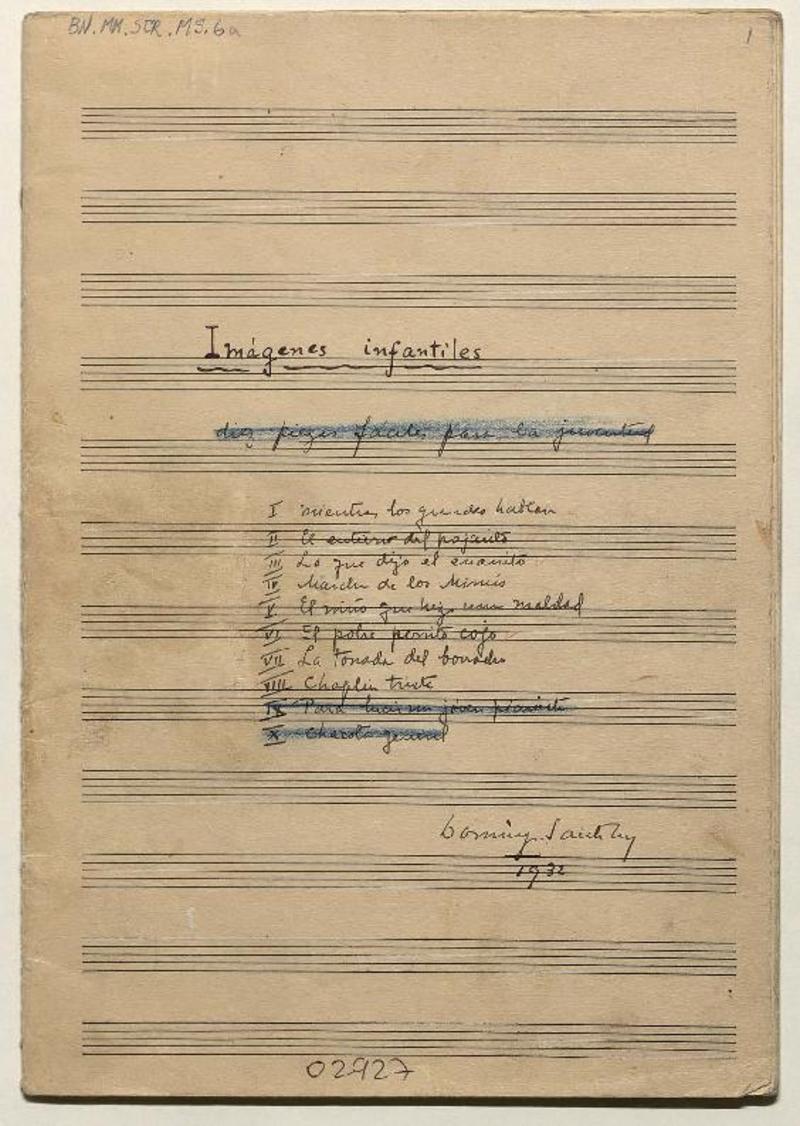 BN.MM.SCR.MS.6a
1
Imágenes infantiles
diez piezas fáciles para la juventud
I mientras los grandes hablan
II El entierro del pajarito
III Lo que dijo el enanito
IV Marcha de los
V El niño que hizo una maldad
VI El pobre perrito cojo
VII La Tonada del
VIII Chaplin triste
IX Para lucir un joven pianista
X general
Domingo Santa Cruz
1932
02927